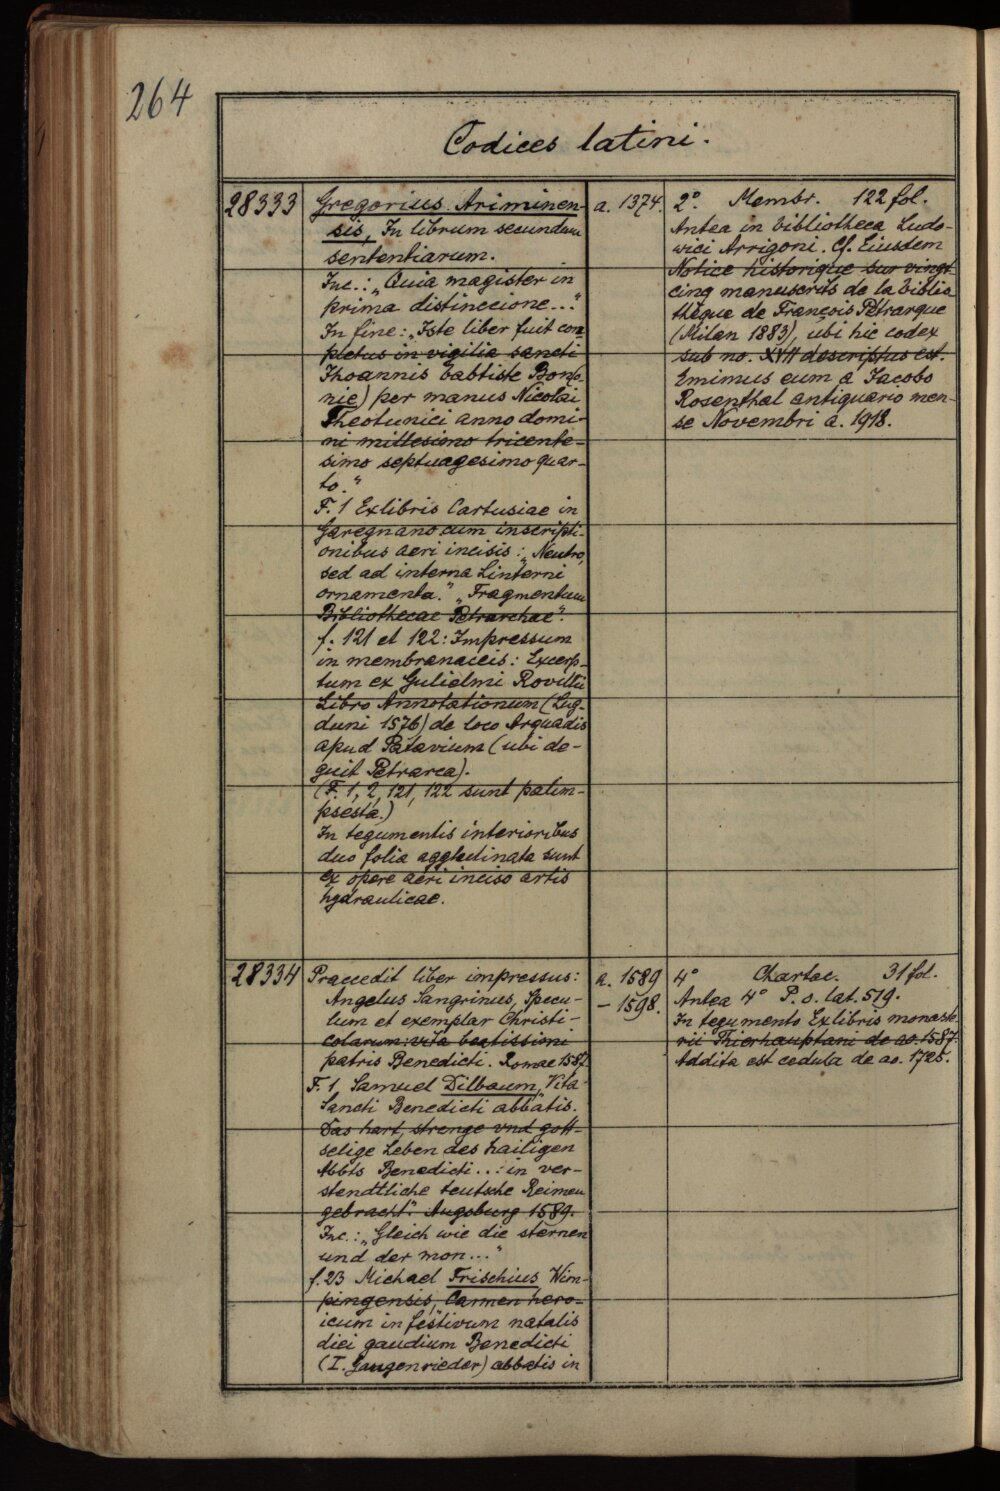 264
Codices latini.
28333
Gregorius Ariminen-
sis, In librum secundum
sententiarum.
Inc.: „Quia magister in
prima distinccione..."
In fine: „Iste liber fuit con
pletus in vigilia sancti
Ihoannis babtiste Bon(o-
nie) per manus Nicolai
Theotunici anno domi-
ni millesimo tricente-
simo septuagesimo quar-
to."
F. 1 Exlibris Cartusiae in
Garegnano cum inscripti-
onibus aeri incisis: „Neutro,
sed ad interna Linterni
ornamenta." „Fragmentum
Bibliothecae Petrarchae".
f. 121 et 122: Impressum
in membranaceis: Excerp-
tum ex Gulielmi Rovillii
Libro Annotationum (Lug-
duni 1576) de loco Arquadis
apud Patavium (ubi de-
guit Petrarca).
(F. 1, 2, 121, 122 sunt palim-
psesta.)
In tegumentis interioribus
duo folia agglutinata sunt
ex opere aeri inciso artis
hydraulicae.
a. 1374.
2° Membr. 122 fol.
Antea in bibliotheca Ludo-
wici Arrigoni. Cf. Eiusdem
Notice historique sur vingt-
cinq manuscrits de la biblio
thèque de François Pétrarque
(Milan 1883), ubi hic codex
sub no. XVII descriptus est.
Emimus eum a Jacobo
Rosenthal antiquario men-
se Novembri a. 1918.
28334
Praecedit liber impressus:
Angelus Sangrinus, Specu-
lum et exemplar Christi-
colarum: vita beatissimi
patris Benedicti. Romae 1587
F. 1, Samuel Dilbaum, Vita
Sancti Benedicti abbatis.
„Das hart, strenge vnd gott-
selige Leben des hailigen
Abbts Benedicti... in ver-
stendtliche teutsche Reimen
gebracht." Augsburg 1589.
Inc.: „Gleich wie die sternen
und der mon..."
f. 23 Michael Frischius Wim-
pingensis, Carmen hero-
icum in festivum natalis
diei gaudium Benedicti
(I. Gangenrieder) abbatis in
a. 1589
– 1598.
4° Chartac. 31 fol.
Antea 4° P. o. lat. 519.
In tegumento Exlibris monaste
rii Thierhauptani de ao. 1587.
Addita est cedula de ao. 1725.